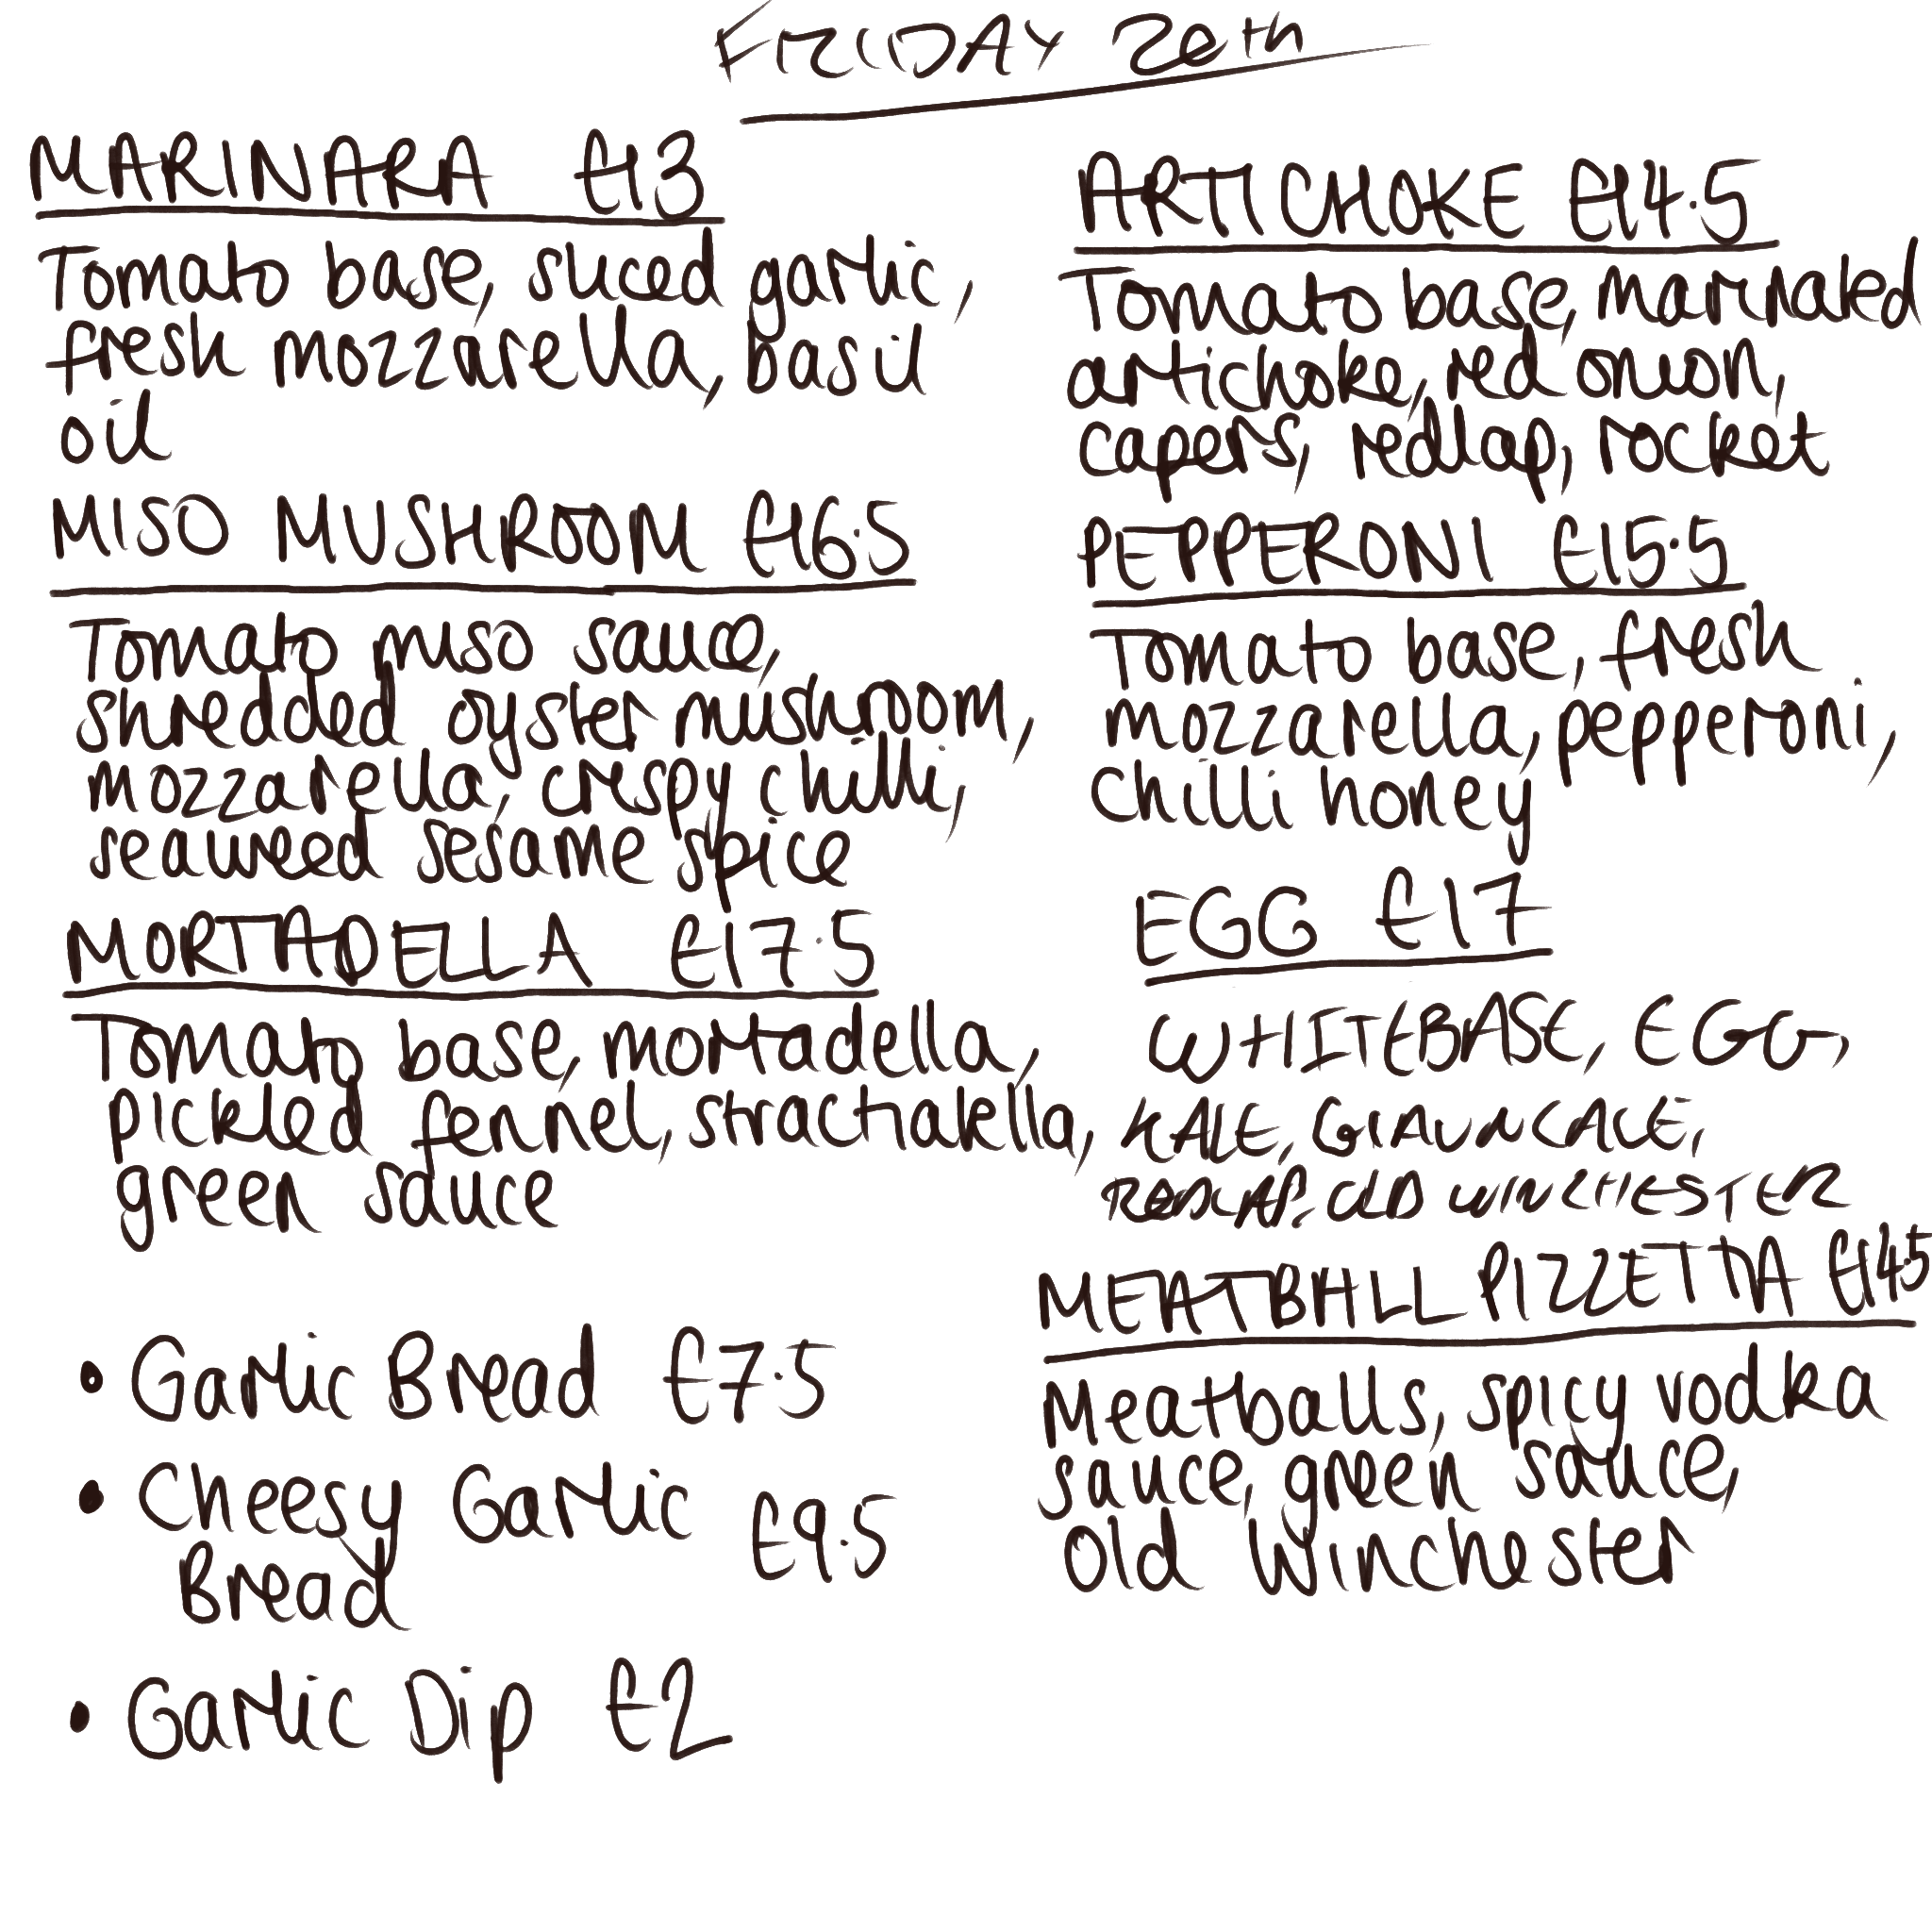 FRIDAY 20th
MARINARA £13
Tomato base, sliced garlic,
fresh mozzarella, basil
oil
MISO MUSHROOM £16.5
Tomato miso sauce,
shredded oyster mushroom,
mozzarella, crispy chilli,
seaweed sesame spice
MORTADELLA £17.5
Tomato base, mortadella,
pickled fennel, strachatella,
green sauce
• Garlic Bread £7.5
• Cheesy Garlic £9.5
Bread
• Garlic Dip £2
ARTICHOKE £14.5
Tomato base, marinated
artichoke, red onion,
capers, redlap, rocket
PEPPERONI £15.5
Tomato base, fresh
mozzarella, pepperoni,
chilli honey
EGG £17
WHITE BASE, EGG,
KALE,
REDLAP, OLD WINCHESTER
MEATBALL PIZZETTA £14.5
Meatballs, spicy vodka
sauce, green sauce,
Old Winchester